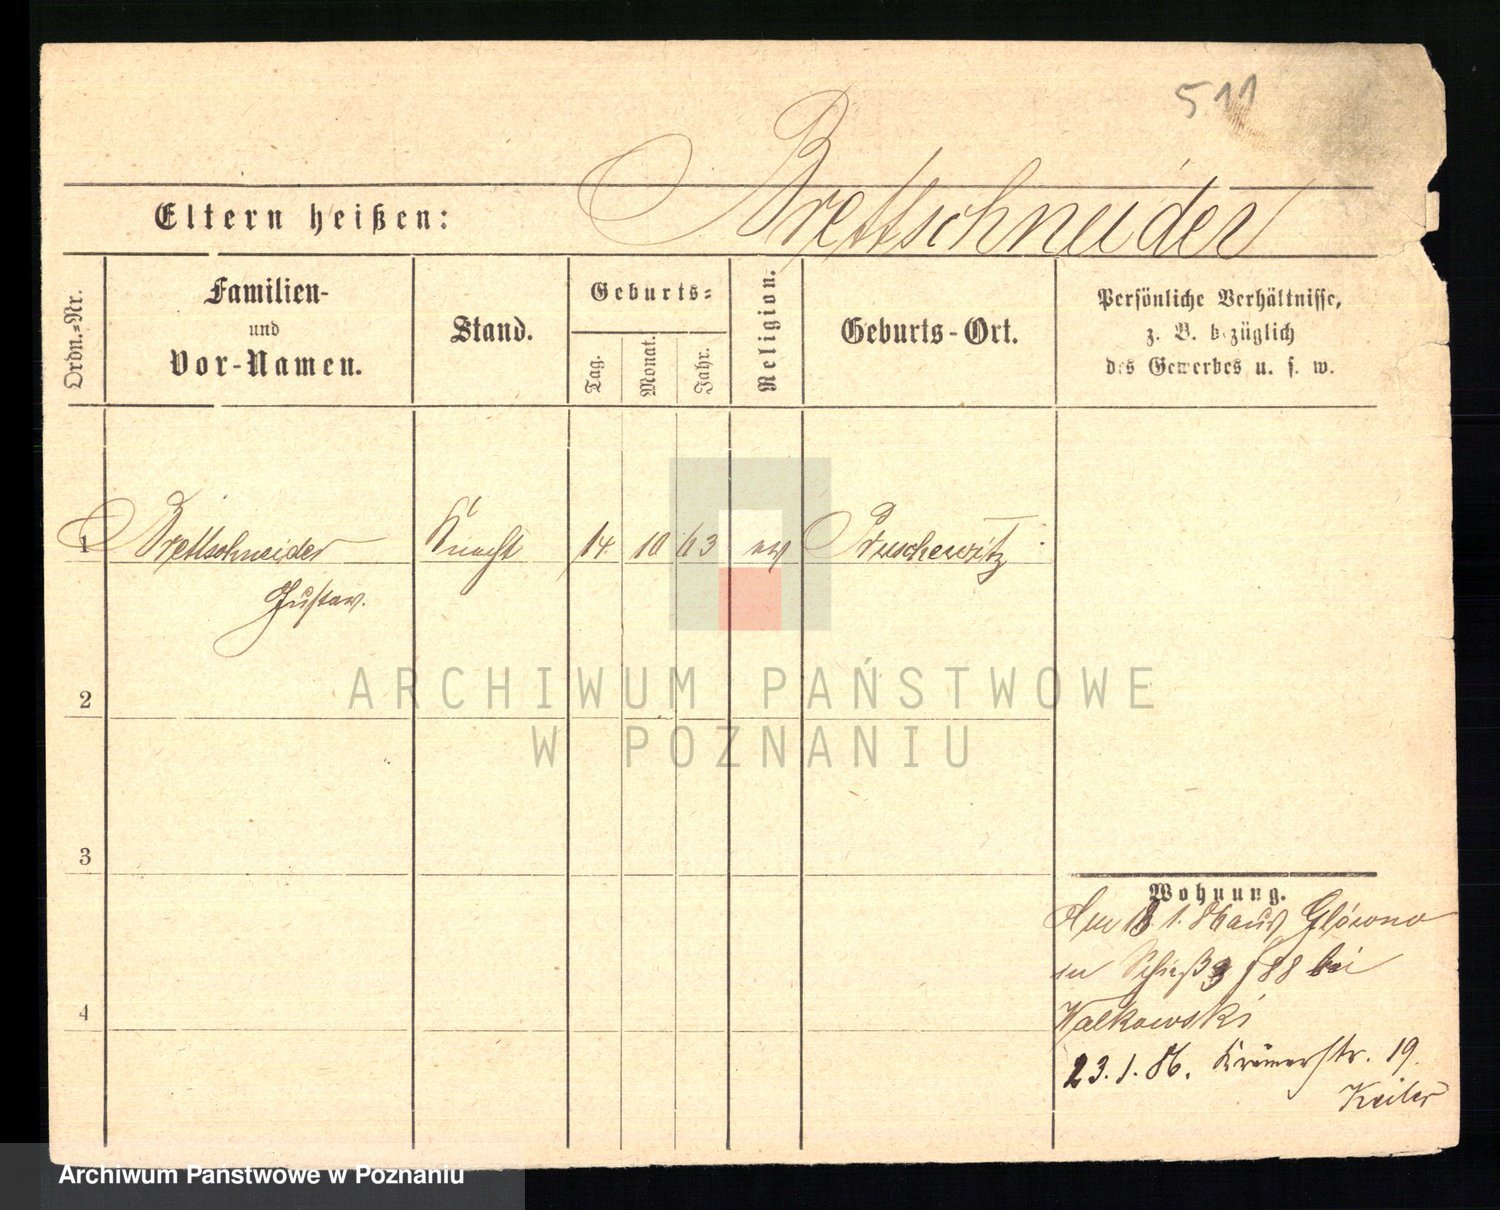 511
Eltern heißen: Brettschneider
Ordn.=Nr.
Familien-
und
Vor-Namen.
Stand.
Geburts=
Tag.
Monat.
Jahr.
Religion.
Geburts-Ort.
Persönliche Verhältnisse,
z. B. bezüglich
des Gewerbes u. s. w.
1 Brettschneider Knecht 14 10 63 ev Pruschewitz
Gustav.
2
3
4
Wohnung.
1. 86 aus Glówno
in 88 bei
Walkowski
23. 1. 86. Krämerstr. 19.
Keiler
ARCHIWUM PAŃSTWOWE
W POZNANIU
Archiwum Państwowe w Poznaniu